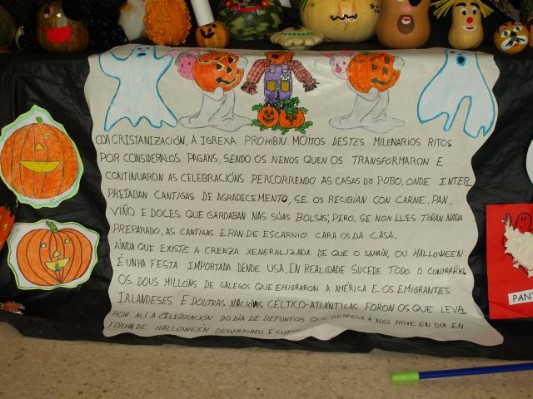 COA CRISTIANIZACIÓN, A IGREXA PROHIBIU MOITOS DESTES MILENARIOS RITOS
POR CONSIDERALOS PAGANS, SENDO OS NENOS QUEN OS TRANSFORMARON E
CONTINUARON AS CELEBRACIÓNS PERCORRENDO AS CASAS DO POBO, ONDE INTER
PRETABAN CANTIGAS DE AGRADECEMENTO, SE OS RECIBÍAN CON CARNE, PAN,
VIÑO E DOCES QUE GARDABAN NAS SÚAS BOLSAS; PERO, SE NON LLES TIÑAN NADA
PREPARADO, AS CANTIGAS ERAN DE ESCARNIO CARA OS DA CASA.
AÍNDA QUE EXISTE A CRENZA XENERALIZADA DE QUE O SAMAÍN, OU HALLOWEEN
É UNHA FESTA IMPORTADA DENDE USA, EN REALIDADE SUCEDE TODO O CONTRARIO.
OS DOUS MILLÓNS DE GALEGOS QUE EMIGRARON A AMÉRICA E OS EMIGRANTES
IRLANDESES E DOUTRAS NACIÓNS CÉLTICO-ATLÁNTICAS FORON OS QUE LEVA
RON ALÍ A CELEBRACIÓN DO DÍA DE DEFUNTOS QUE REGRESA A NÓS HOXE EN DÍA EN
FORMA DE HALLOWEEN
PANT